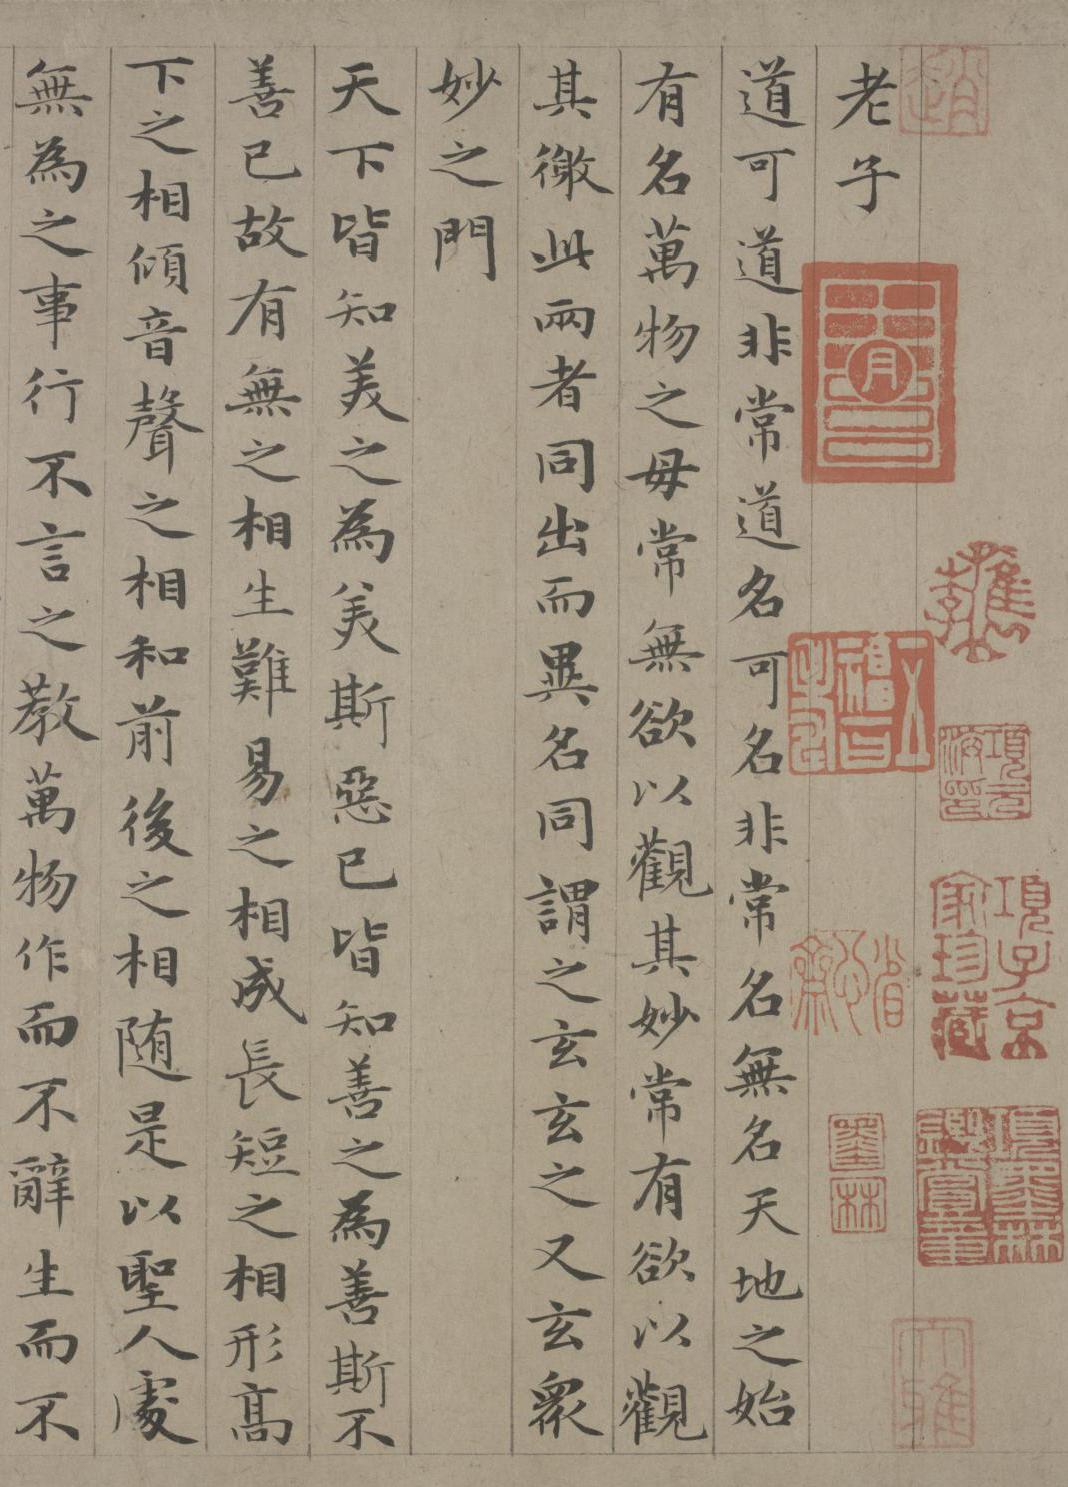 檇李
項元汴印
項子京家珍藏
項墨林鑑賞章
墨林
老子
道可道非常道名可名非常名無名天地之始
有名萬物之母常無欲以觀其妙常有欲以觀
其徼此兩者同出而異名同謂之玄玄之又玄衆
妙之門
天下皆知美之為美斯惡已皆知善之為善斯不
善已故有無之相生難易之相成長短之相形高
下之相傾音聲之相和前後之相随是以聖人處
無為之事行不言之教萬物作而不辭生而不